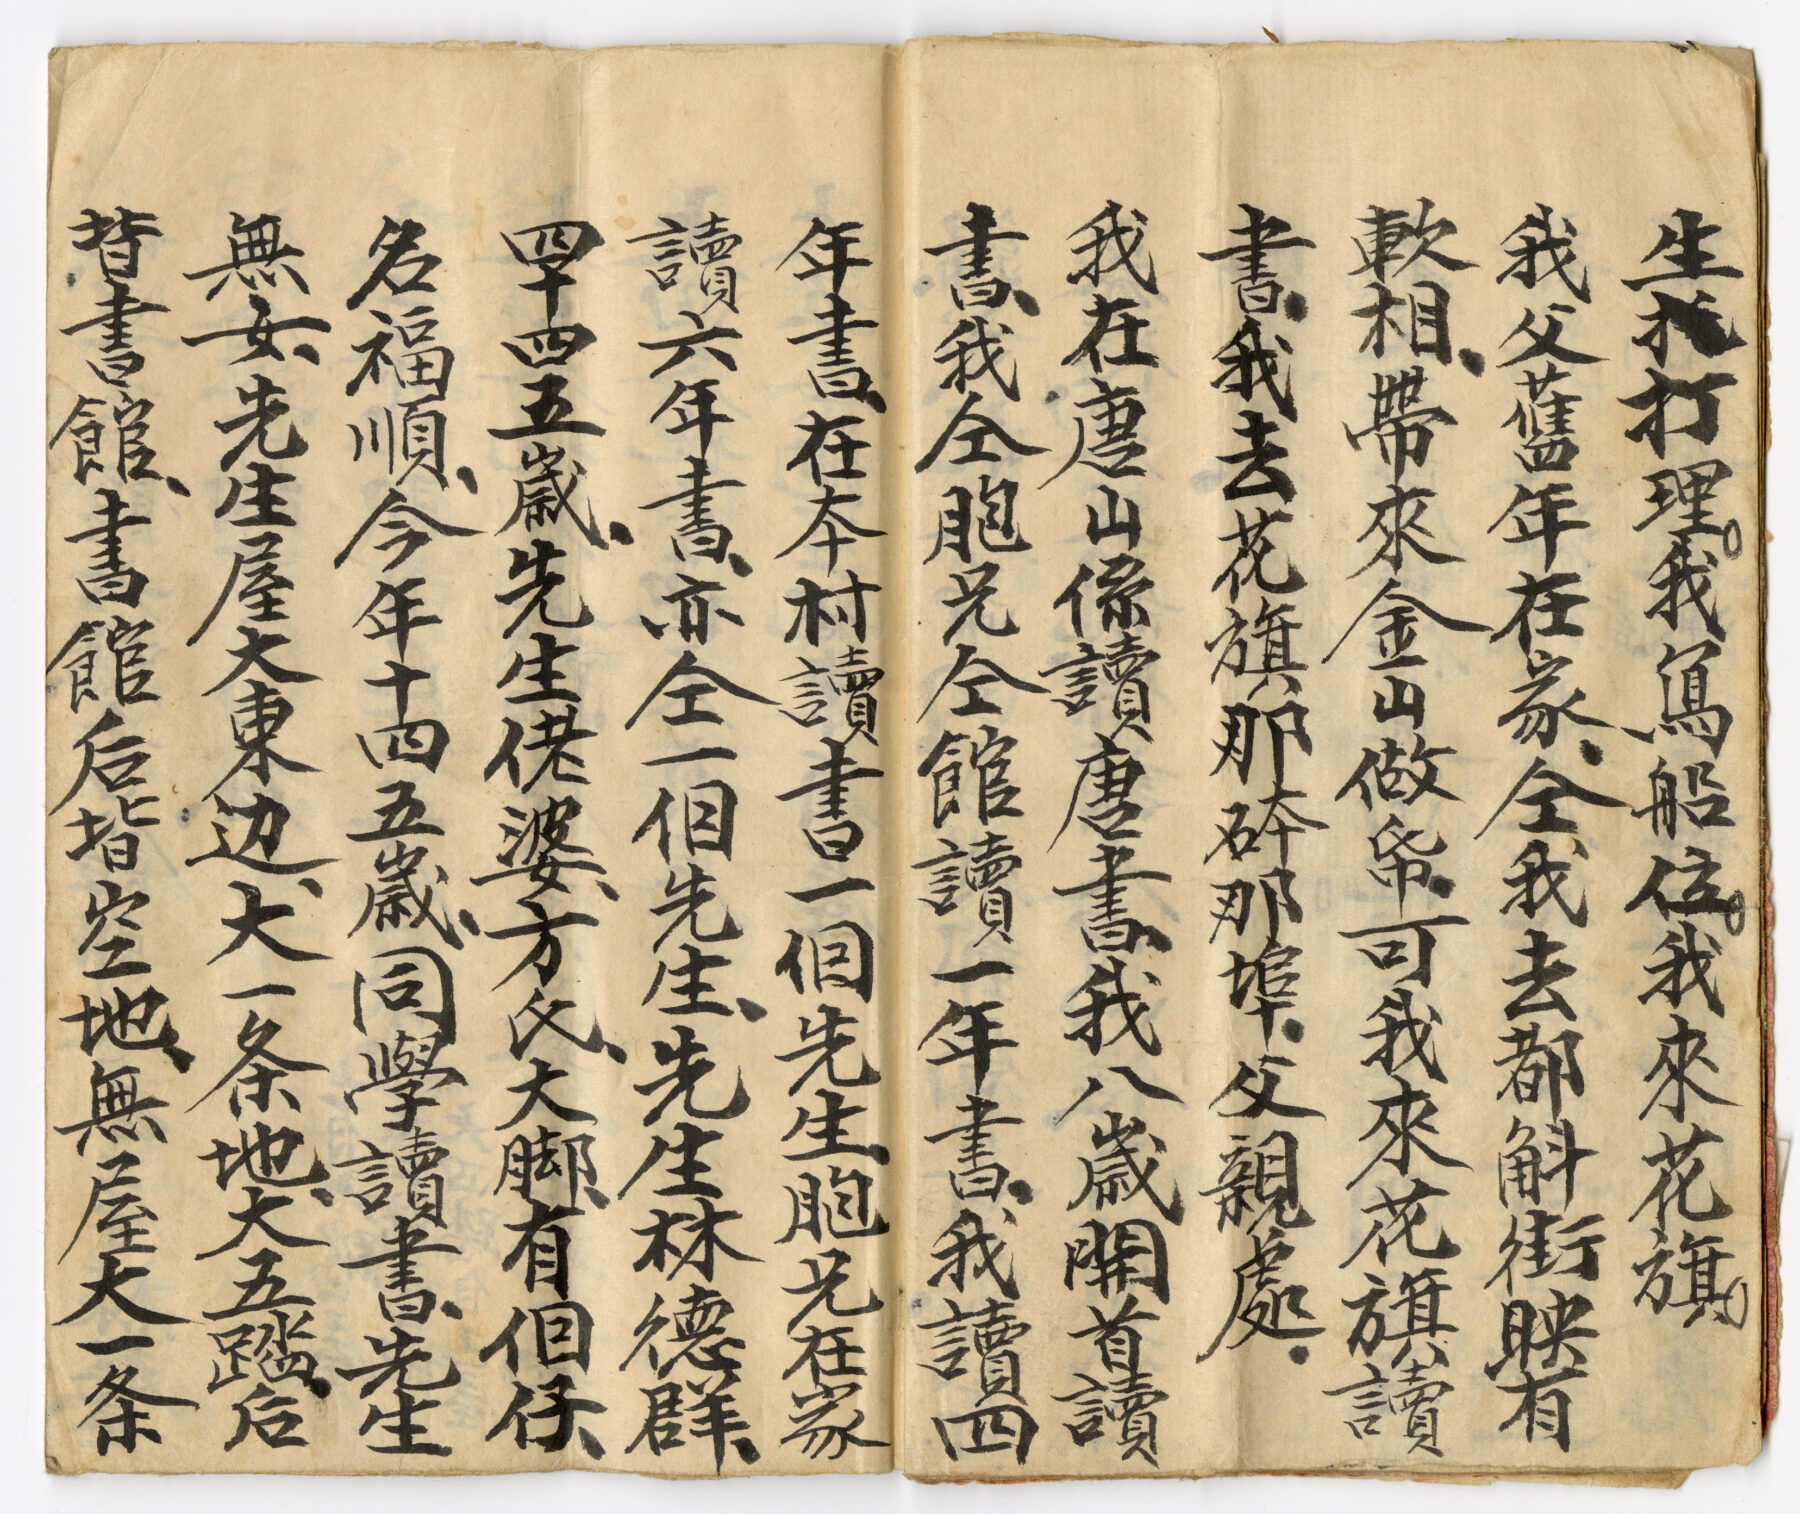 生打理。我寫船位。我來花旗。
我父舊年在家、仝我去都斛街映有
軟相、帶來金山做帋、可我來花旗讀
書、我去花旗、那砕那埠、父親處、
我在唐山係讀唐書、我八歲開首讀
書、我仝胞兄仝館讀一年書、我讀四
年書、在本村讀書一個先生、胞兄在家
讀六年書、亦仝一個先生、先生林德群、
四十四五歲、先生佬婆、方氏、大脚、有個仔、
名福順、今年十四五歲、同學讀書、先生
無女、先生屋大東边、大一条地、大五踏、后
背書館、書館后背空地、無屋、大一条